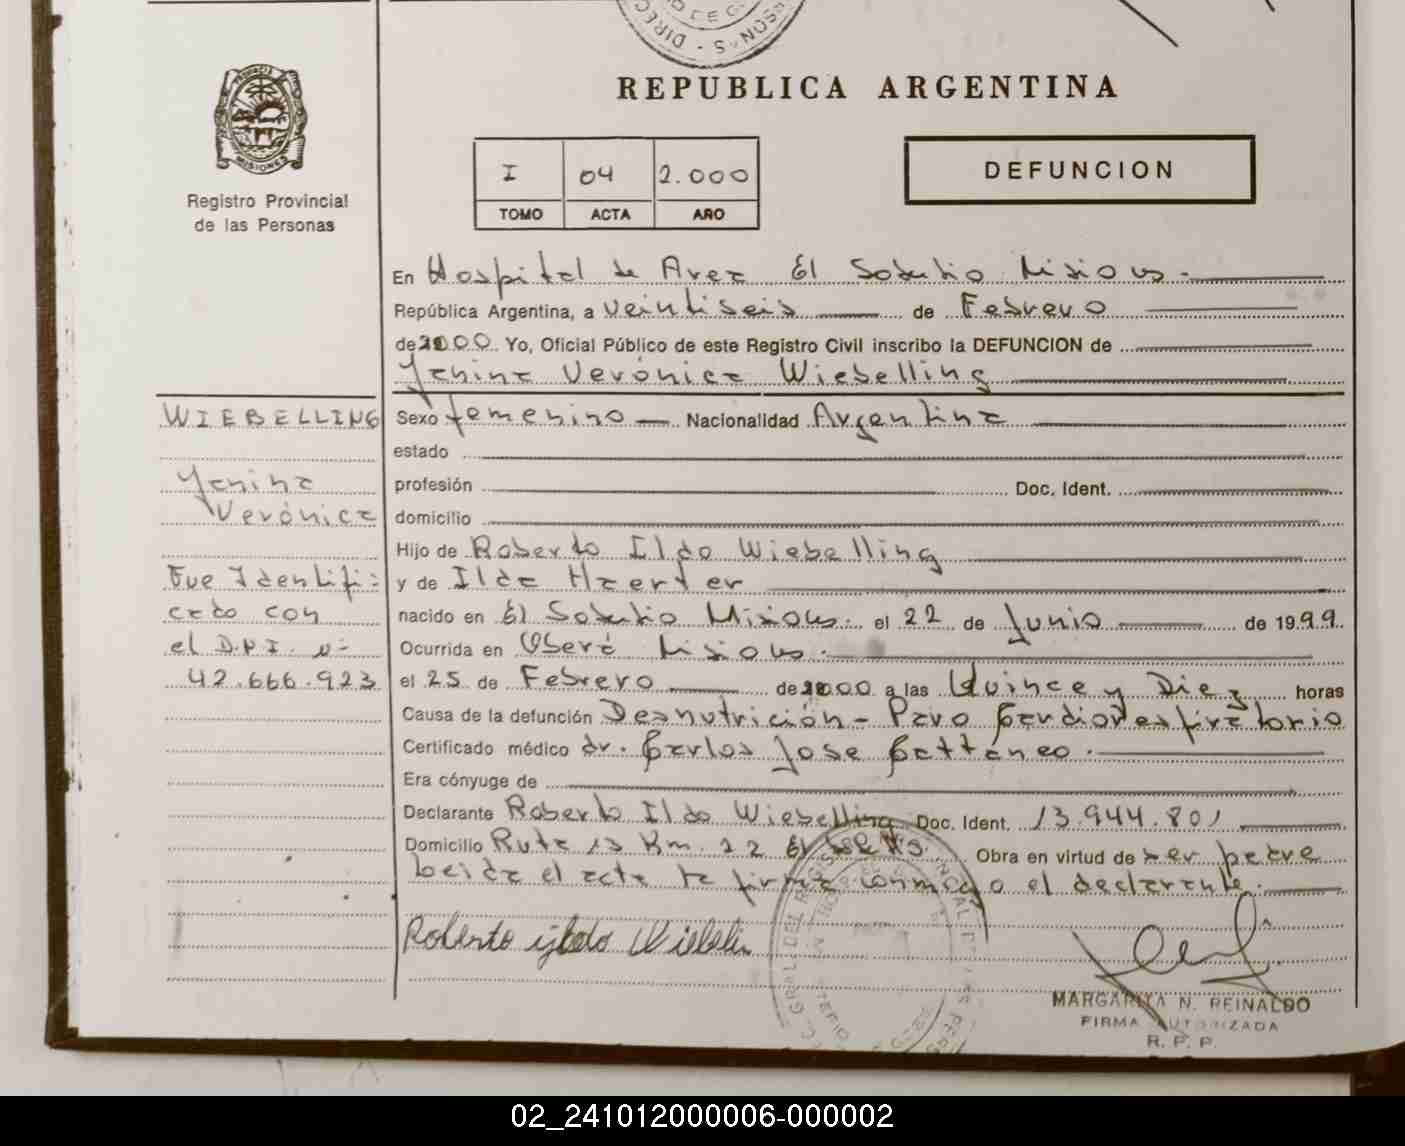 REPUBLICA ARGENTINA
PROVINCIA DE
MISIONES
Registro Provincial
de las Personas
I 04 2.000
TOMO ACTA AÑO
DEFUNCION
En Hospital de Area El Soberbio Misiones.
República Argentina, a veintiseis de Febrero
de 2000. Yo, Oficial Público de este Registro Civil inscribo la DEFUNCION de
Yanina Verónica Wiebelling
WIEBELLING
Yanina
Verónica
Fue Identifi=
cada con
el D.N.I. nº
42.666.923
Sexo femenino Nacionalidad Argentina
estado
profesión Doc. Ident.
domicilio
Hijo de Roberto Ildo Wiebelling
y de Ilda Haerter
nacido en El Soberbio Misiones. el 22 de Junio de 1999.
Ocurrida en Oberá Misiones.
el 25 de Febrero de 2000 a las Quince y Diez horas
Causa de la defunción Desnutrición - Paro Cardiorespiratorio
Certificado médico dr. Carlos Jose Cattáneo.
Era cónyuge de
Declarante Roberto Ildo Wiebelling Doc. Ident. 13.944.801
Domicilio Ruta 13 Km. 22 El Sob. Obra en virtud de ser padre
Leida el acta la firma conmigo el declarante.
Roberto
MARGARITA N. REINALDO
FIRMA AUTORIZADA
R. P. P.
02_241012000006-000002